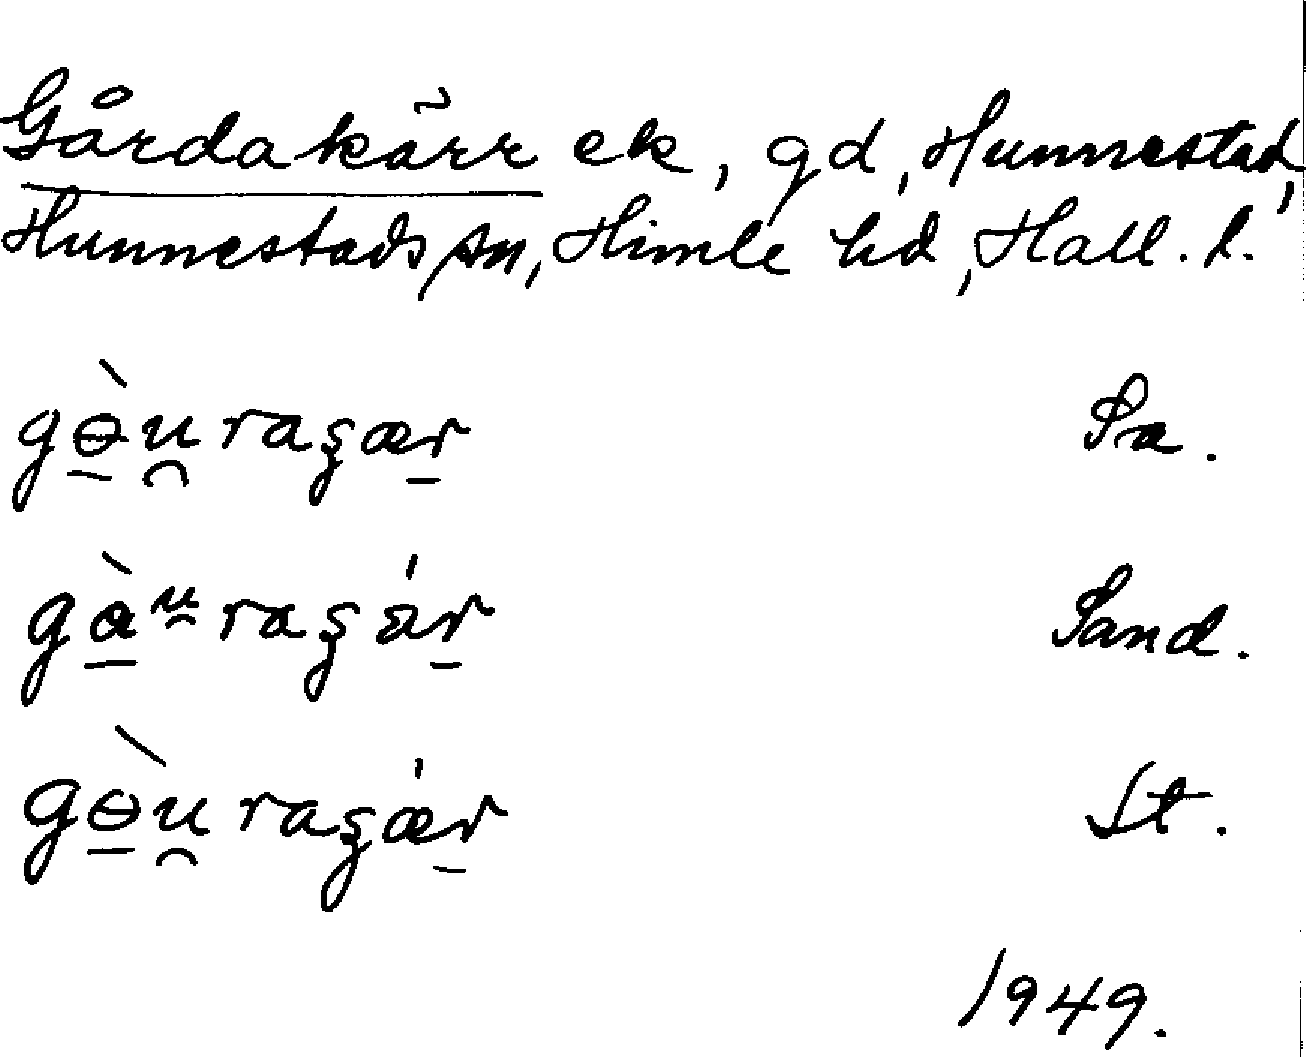 Gårdakärr ek, gd, Hunnestad,
Hunnestads sn, Himle hd, Hall. l.
gɵ̱̀u̯raʒæṟ Sa.
gà̱ᵘ̯raʒáṟ Sand.
gɵ̱̀u̯raʒǽṟ St.
1949.